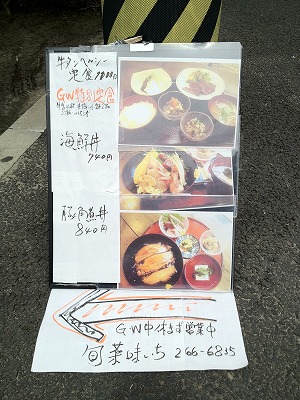 牛タンヘルシー
定食
GW特別定食
海鮮丼
940円
豚角煮丼
840円
GW中休まず営業中
旬菜味いち 266-6835